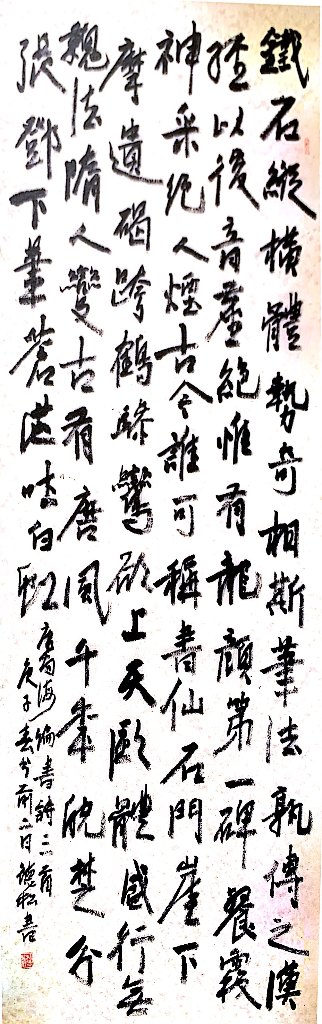 鐵石縱橫體勢奇相斯筆法孰傳之漢
經以後音塵絕惟有龍顏第一碑餐霞
神采絕人煙古今誰可稱書仙石門崖下
摩遺碣跨鶴驂鸞欲上天歐體盛行無
魏法隋人變古有唐風千年皖楚分
張鄧下筆蒼茫吐白虹
康南海論書詩三首
庚子春分前二日松書